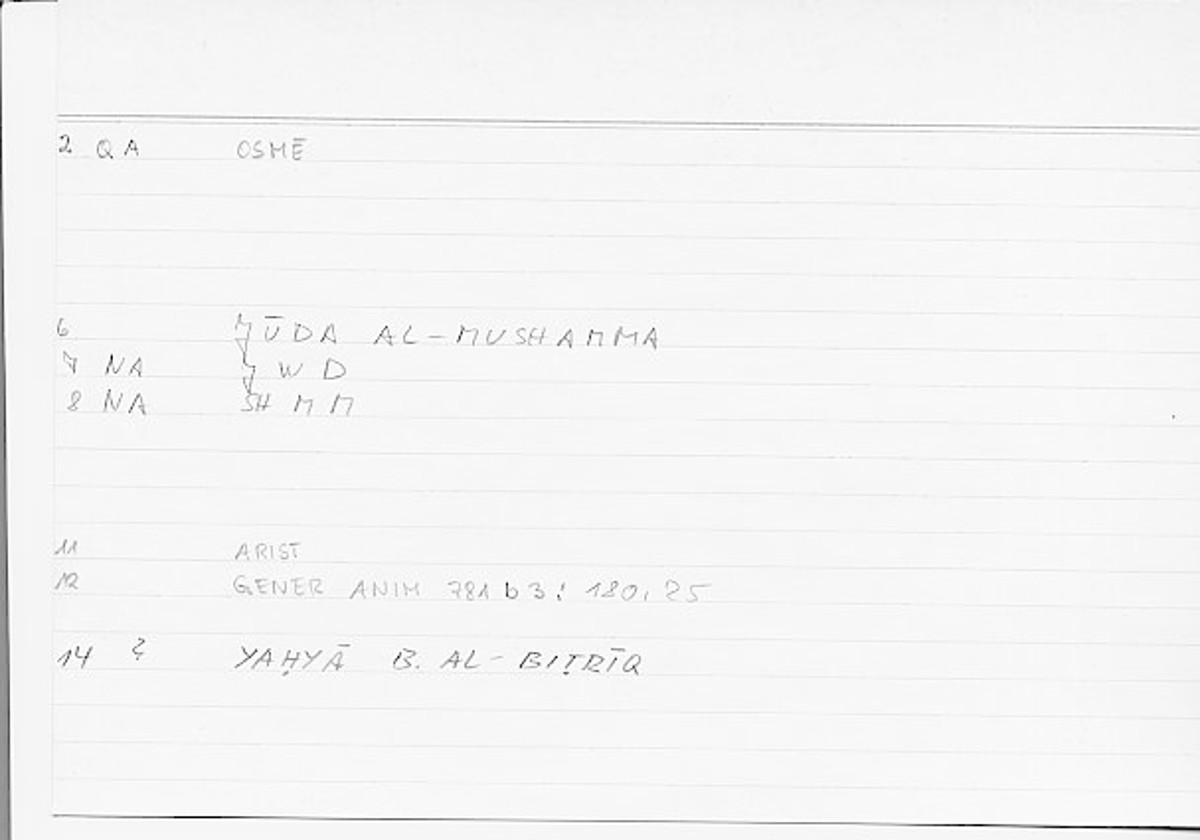 2 QA OSMĒ
6 JŪDA AL-MUSHAMMA
7 NA J W D
8 NA SH M M
11 ARIST
12 GENER ANIM 781 b 3: 180,25
14 YAḤYĀ B. AL-BIṬRĪQ